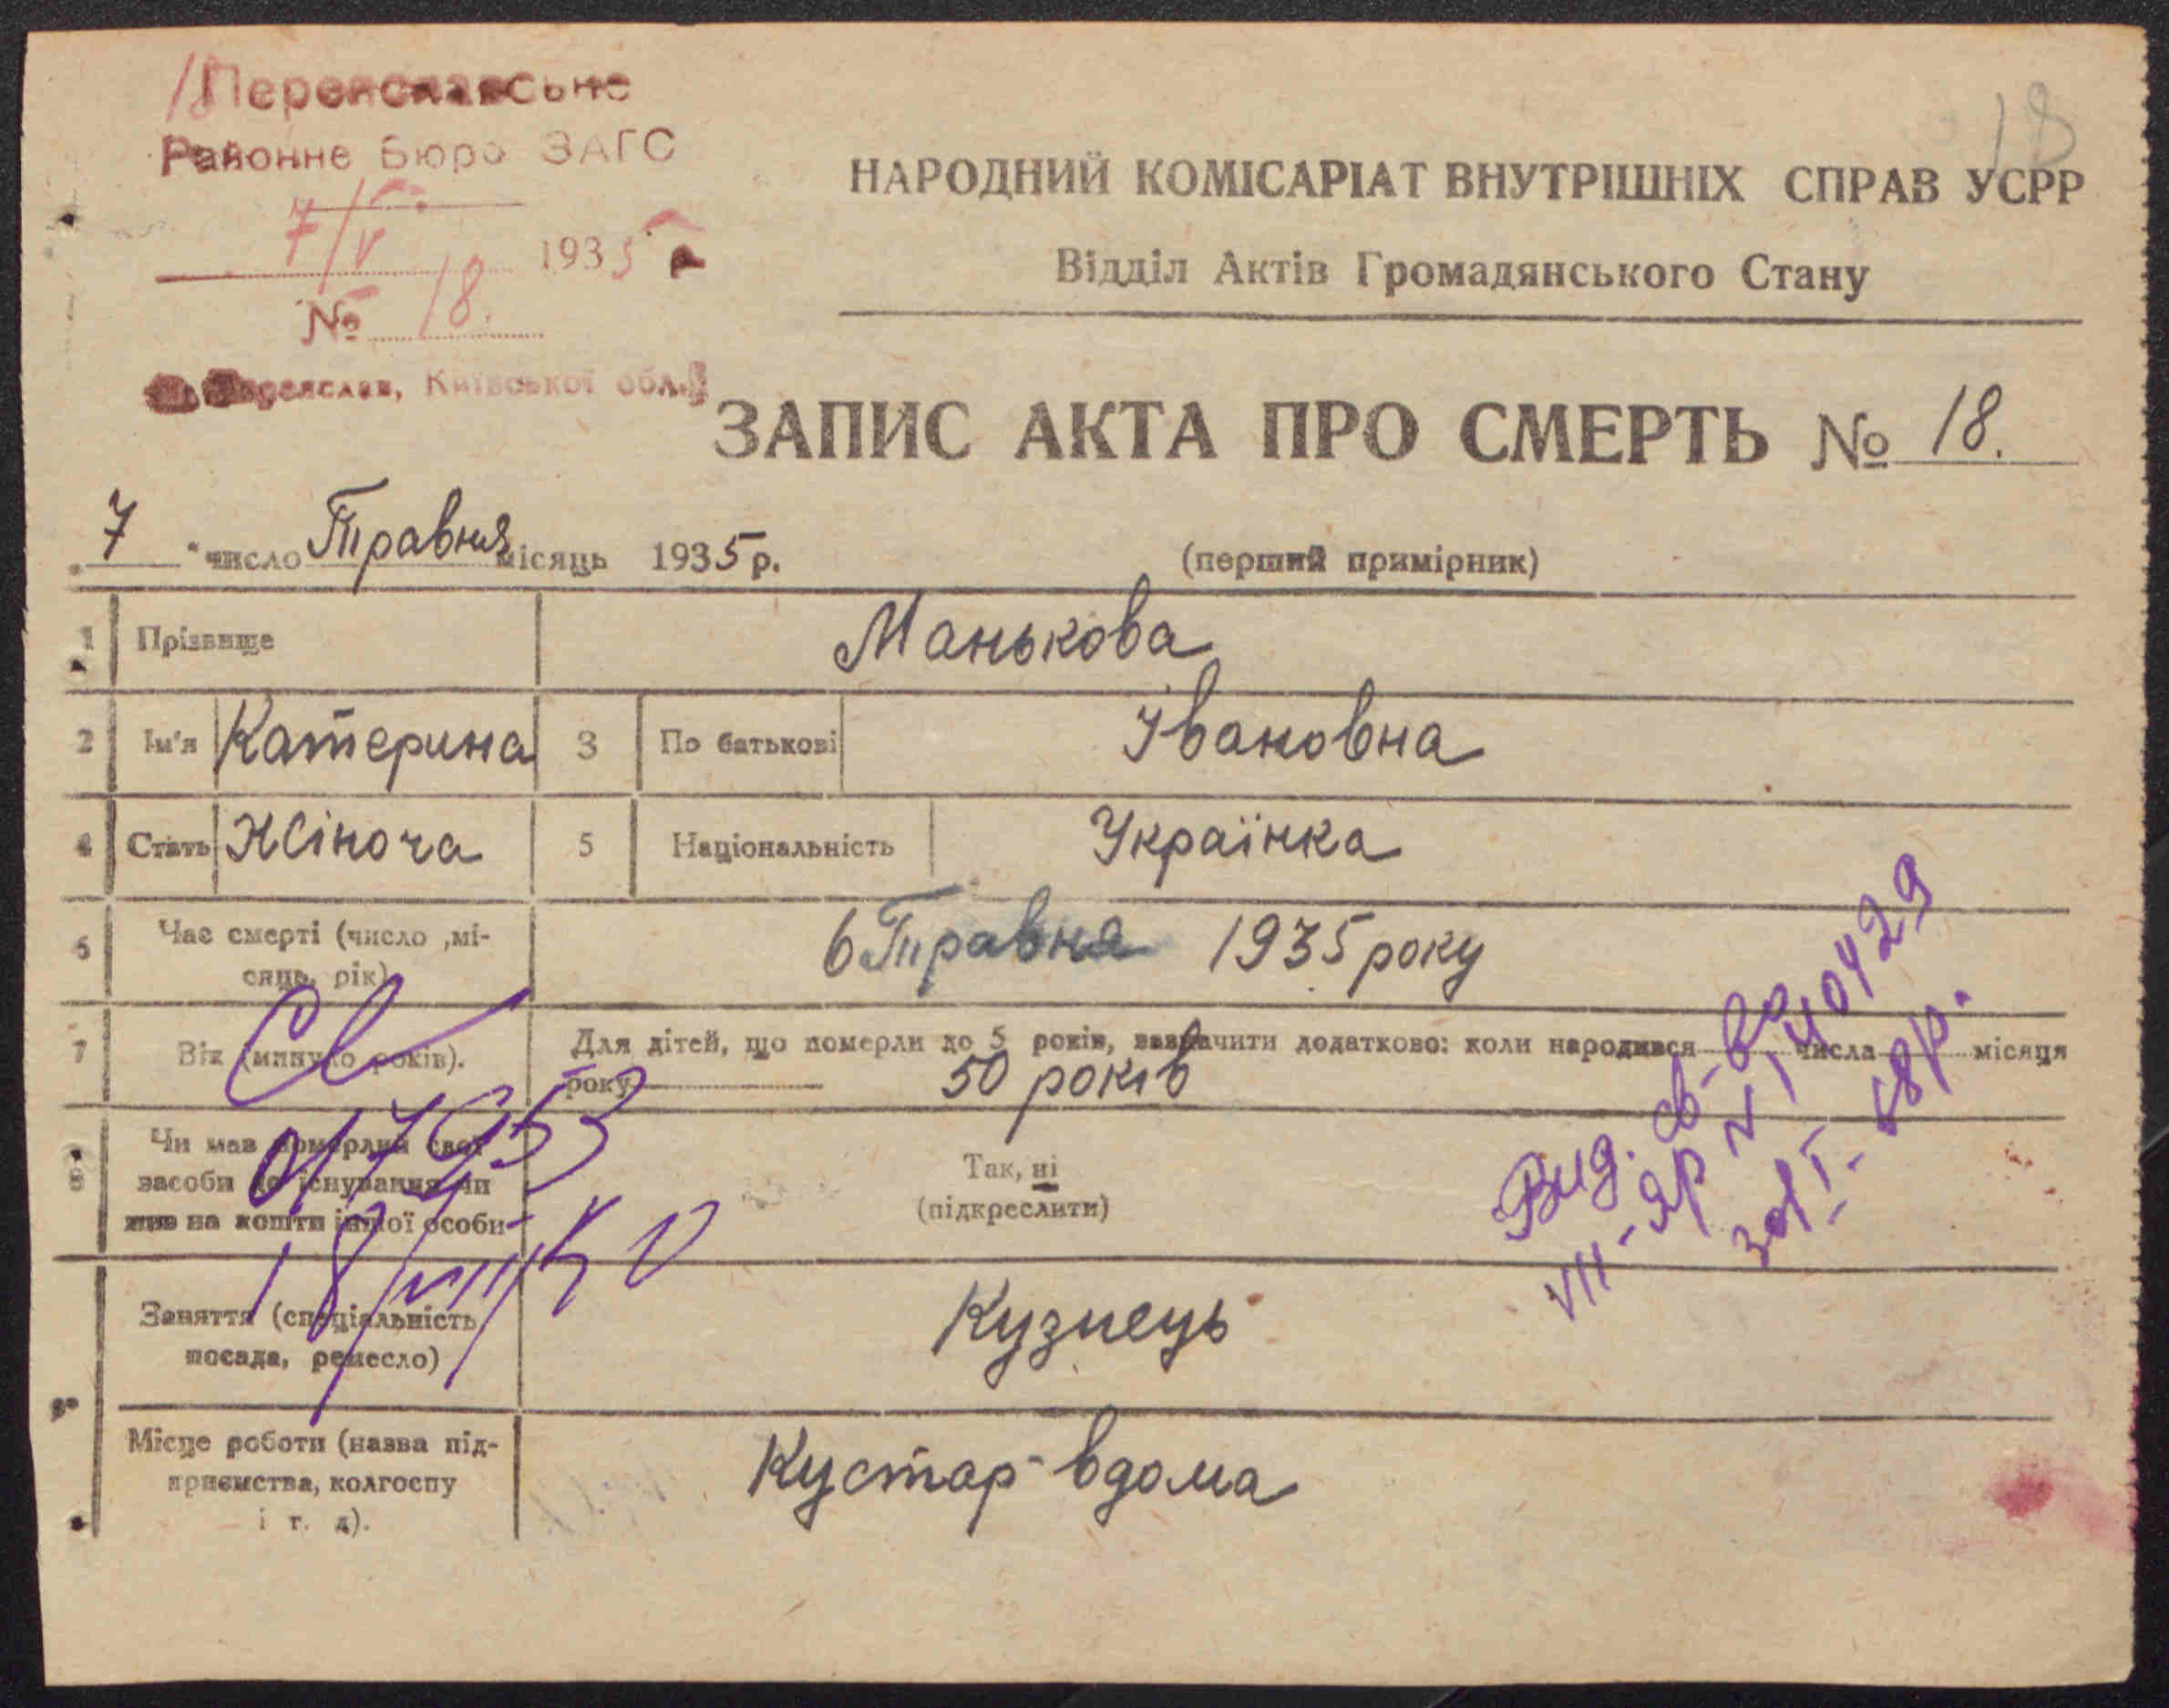 18
Переяславське
Районне Бюро ЗАГС
7/V 1935 р
№ 18.
Переяслав, Київської обл.
18
НАРОДНИЙ КОМІСАРІАТ ВНУТРІШНІХ СПРАВ УСРР
Відділ Актів Громадянського Стану
ЗАПИС АКТА ПРО СМЕРТЬ № 18.
„7“ число Травня місяць 1935 р.
(перший примірник)
1 Прізвище Манькова
2 Ім'я Катерина 3 По батькові Івановна
4 Стать Жіноча 5 Національність Українка
6 Час смерті (число ,мі-
сяць, рік) 6 Травня 1935 року
7 Вік (минуло років). Для дітей, що померли до 5 років, зазначити додатково: коли народився числа місяця
року 50 років
8 Чи мав померлий свої
засоби до існування чи
жив на кошти іншої особи
Так, ні
(підкреслити)
Заняття (спеціальність
посада, ремесло) Кузнець
9
Місце роботи (назва під-
приємства, колгоспу
і т. д). Кустар вдома
Св
017953
Вид. св-во
VII-ЯР №140429